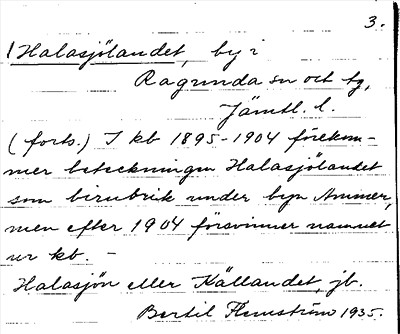 3.
1 Halasjölandet, by i
Ragunda sn och tg,
Jämtl. l.
(forts.) I kb 1895-1904 förekom-
mer beteckningen Halasjölandet
som birubrik under byn Ammer,
men efter 1904 försvinner namnet
ur kb. -
Halasjön eller Källandet, jb.
Bertil Flemström 1935.